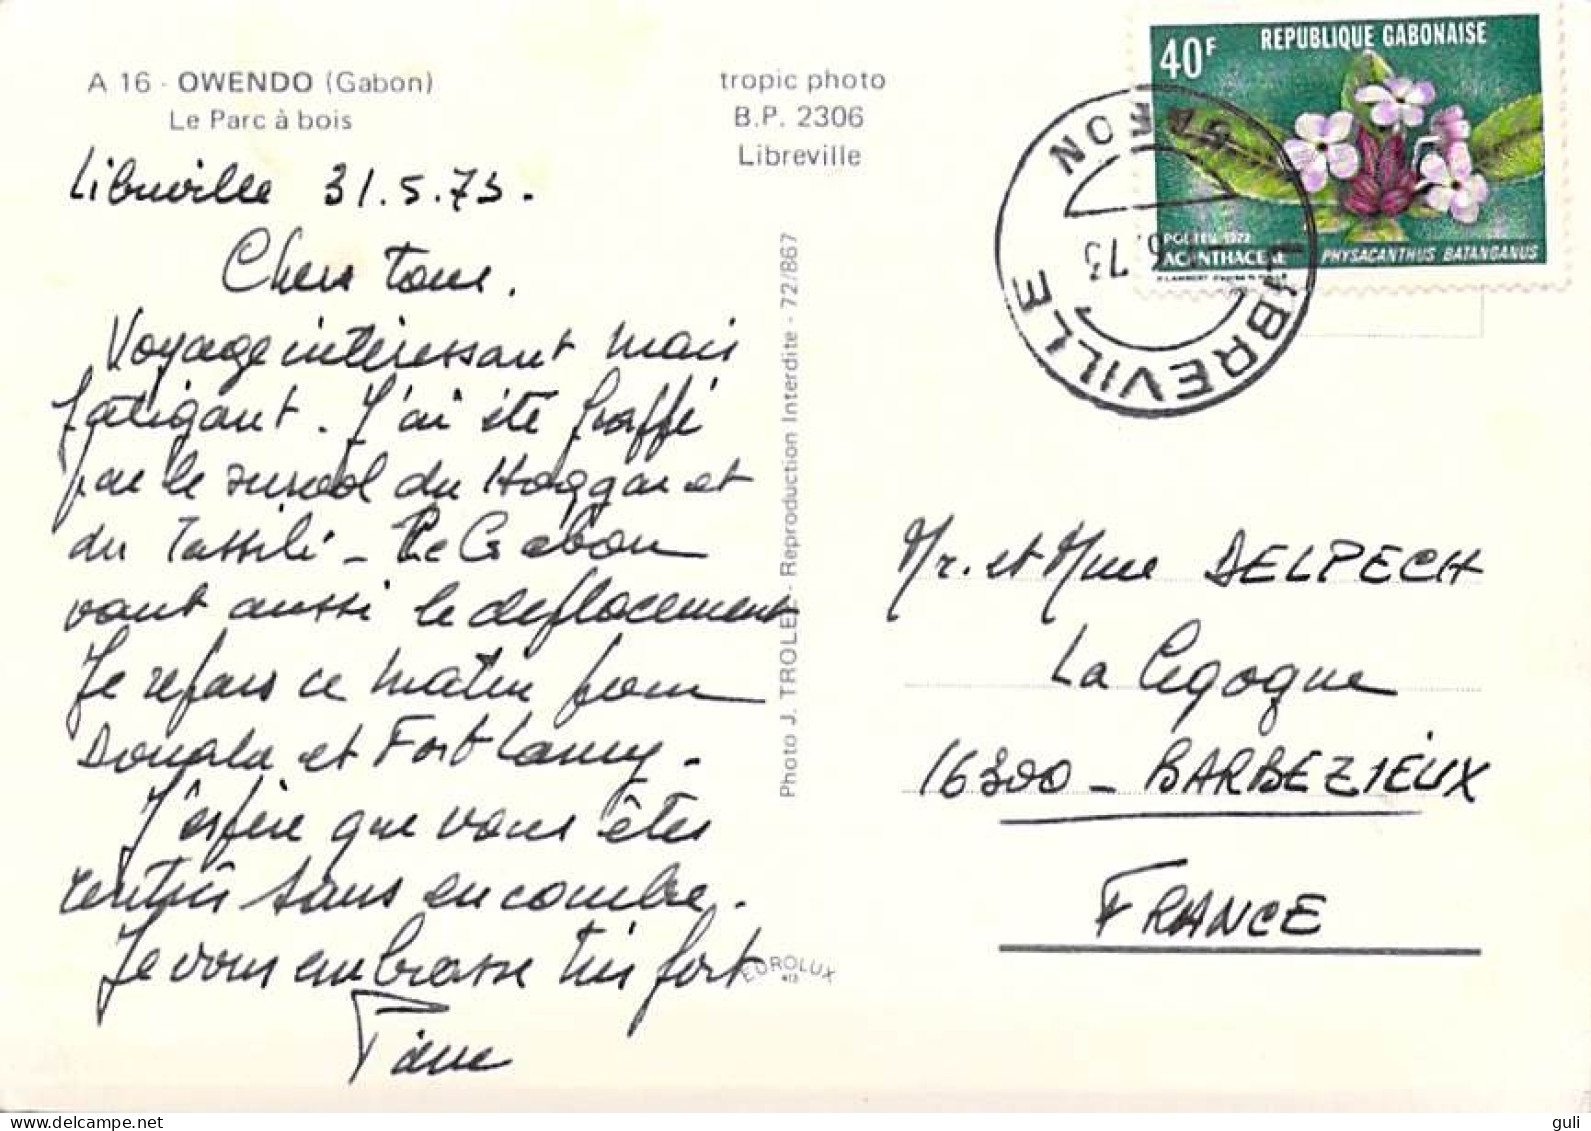 A 16 - OWENDO (Gabon)
Le Parc à bois
tropic photo
B.P. 2306
Libreville
REPUBLIQUE GABONAISE
40F
POSTES 1972
ACANTHACEAE
PHYSACANTHUS BATANGANUS
LIBREVILLE
GABON
6.73
Libreville 31.5.73.
Chers tous.
Voyage intéressant mais
fatigant. J'ai été frappé
par le survol du Hoggar et
du Tassili - Le Gabon
vaut aussi le deplacement
Je repars ce matin pour
Douala et Fort Lamy.
J'espère que vous êtes
rentrés sans encombre.
Je vous embrasse très fort
Pierre
Photo J. TROLEZ - Reproduction Interdite - 72/867
EUROLUX
Mr. et Mme DELPECH
La Cigogne
16300 - BARBEZIEUX
FRANCE
guli